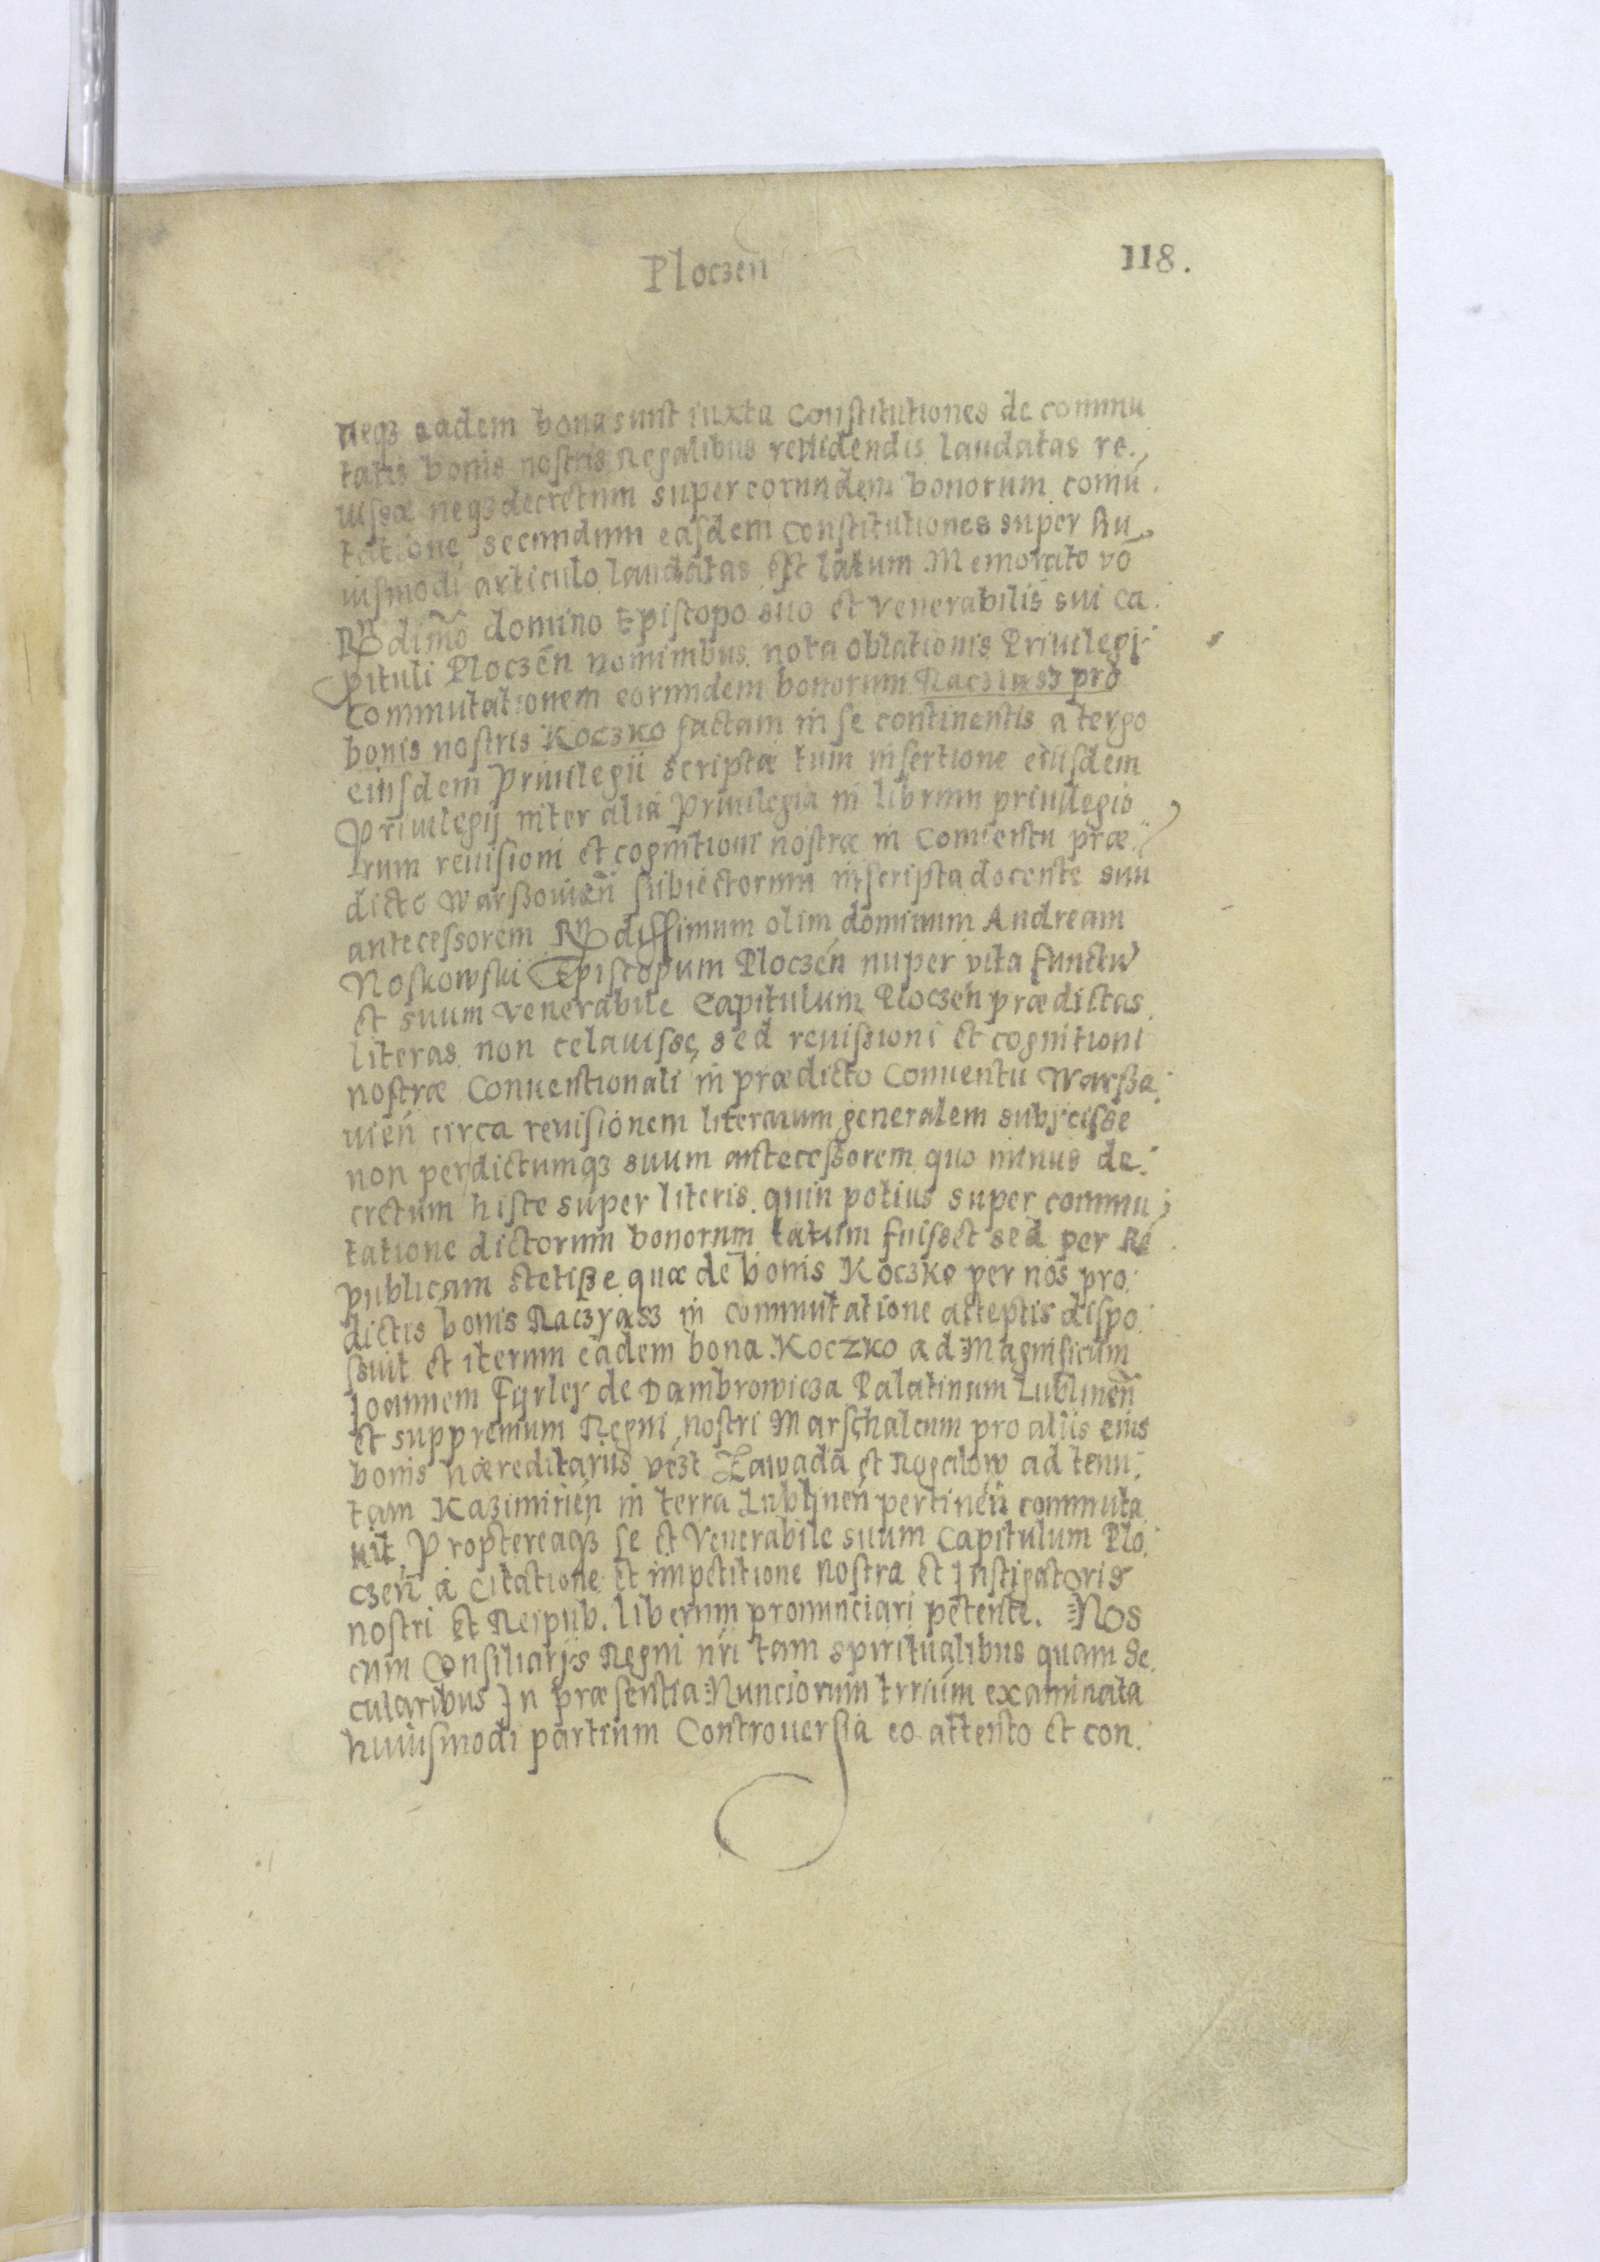 Ploczen
118.
neqz eadem bona sunt iuxta Constitutiones de commu
tatis bonis nostris Regalibus reuidendis laudatas re.
uisæ neqz decretum super eorundem bonorum comu.
tatione secundum easdem Constitutiones super hu
iusmodi articulo laudatas est latum Memorato vo
Rdimo domino Episcopo suo et venerabilis sui Ca.
pituli Ploczen nominibus nota oblationis Priuilegi.
Commutationem eorundem bonorum Raczyasz pro
bonis nostris Koczko factam in se continentis a tergo
eiusdem Priuilegii scripta tum insertione eiusdem
Priuilegij inter alia Priuilegia in librum priuilegio
rum reuisioni et cognitioni nostræ in Conuentu præ.
dicto Warßouien subiectorum inscripta docente suu
antecessorem Rdissimum olim dominum Andream
Noskowski Episcopum Ploczen nuper vita functu
et suum venerabile Capitulum Ploczen prædictas
literas non celauisse, sed reuissioni et cognitioni
nostræ Conuentionali in prædicto Conuentu Warßa.
uien circa reuisionem literarum generalem subjecisse
non per dictumqz suum antecessorem quo minus de.
cretum histe super literis quin potius super commu,
tatione dictorum bonorum latum fuisset sed per Re
publicam stetiße quæ de bonis Koczko per nos pro.
dictis bonis Raczyasz in commutatione acceptis dispo.
suit et iterum eadem bona Koczko ad Magnificum
Joannem Fyrley de Dambrowicza Palatinum Lublinen
et suppremum Regni nostri Marschalcum pro aliis eius
bonis hæreditariis vézt Zawada et Rogalow ad tenu.
tam Kazimirien in terra Lublinen pertinen commuta
uit, Proptereaqz se et Venerabile suum Capitulum Plo.
czen a Citatione et impetitione nostra et Instigatoris
nostri et Reipub. liberum pronunciari petente. Nos
cum Consiliarijs Regni nri tam spiritualibus quam se.
cularibus In præsentia Nunciorum trrium examinata
huiusmodi partium Controuersia eo attento et con.